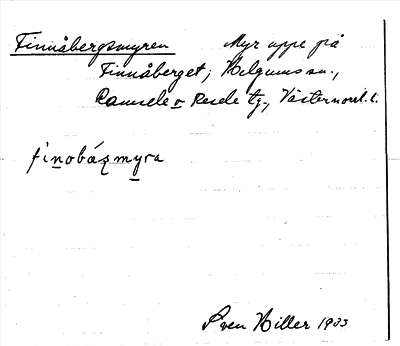 Finnåbergsmyren Myr uppe på
Finnåberget, Helgums sn.,
Ramsele o Resele tg., Västernorrl. l.
finobázmyra
Sven Hiller 1933